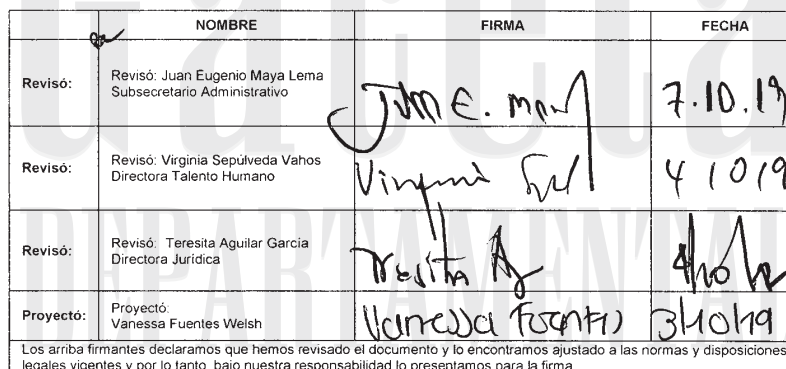 NOMBRE FIRMA FECHA
Revisó: Revisó: Juan Eugenio Maya Lema
Subsecretario Administrativo
Juan E. May 7.10.19
Revisó: Revisó: Virginia Sepúlveda Vahos
Directora Talento Humano
Virginia 4/10/19
Revisó: Revisó: Teresita Aguilar García
Directora Jurídica
Teresita A
Proyectó: Proyectó:
Vanessa Fuentes Welsh
Vanessa Fuentes 3/10/19
Los arriba firmantes declaramos que hemos revisado el documento y lo encontramos ajustado a las normas y disposiciones
legales vigentes y por lo tanto, bajo nuestra responsabilidad lo presentamos para la firma
Gaceta
DEPARTAMENTAL